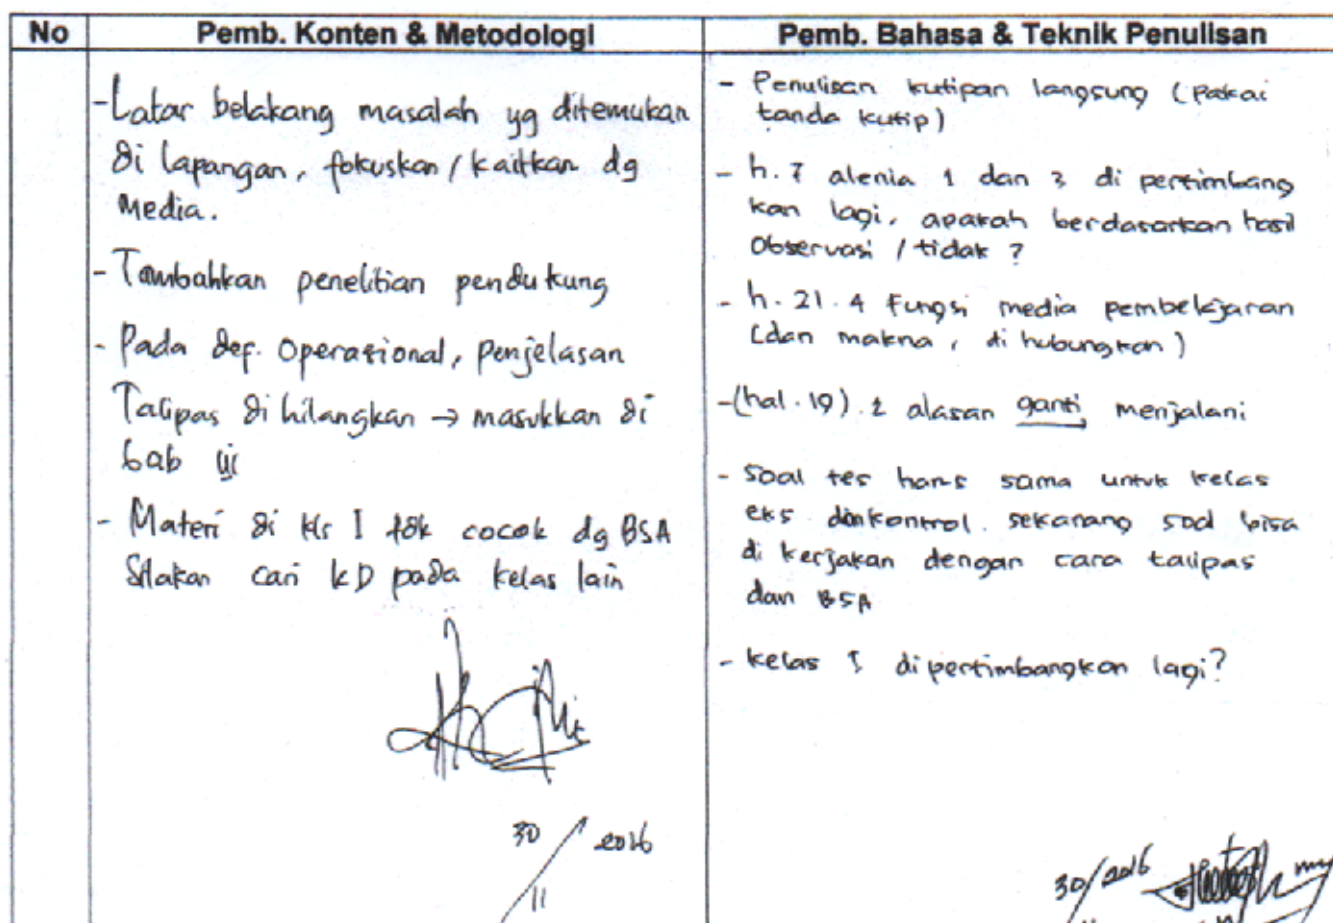 No
Pemb. Konten & Metodologi
Pemb. Bahasa & Teknik Penulisan
- Latar belakang masalah yg ditemukan
di lapangan, fokuskan / kaitkan dg
Media.
- Tambahkan penelitian pendukung
- Pada def. Operasional, penjelasan
Talipas di hilangkan → masukkan di
bab iii
- Materi di kls I tdk cocok dg BSA
Silakan cari KD pada kelas lain
30 / 2016
11
- Penulisan kutipan langsung (pakai
tanda kutip)
- h. 7 alenia 1 dan 3 di pertimbang
kan lagi, apakah berdasarkan hasil
Observasi / tidak ?
- h. 21. 4 Fungsi media pembelajaran
(dan makna, di hubungkan)
- (hal. 19). 2 alasan ganti menjalani
- Soal tes harus sama untuk kelas
eks dankontrol. sekarang soal bisa
di kerjakan dengan cara talipas
dan BSA
- kelas I di pertimbangkan lagi?
30/2016
11